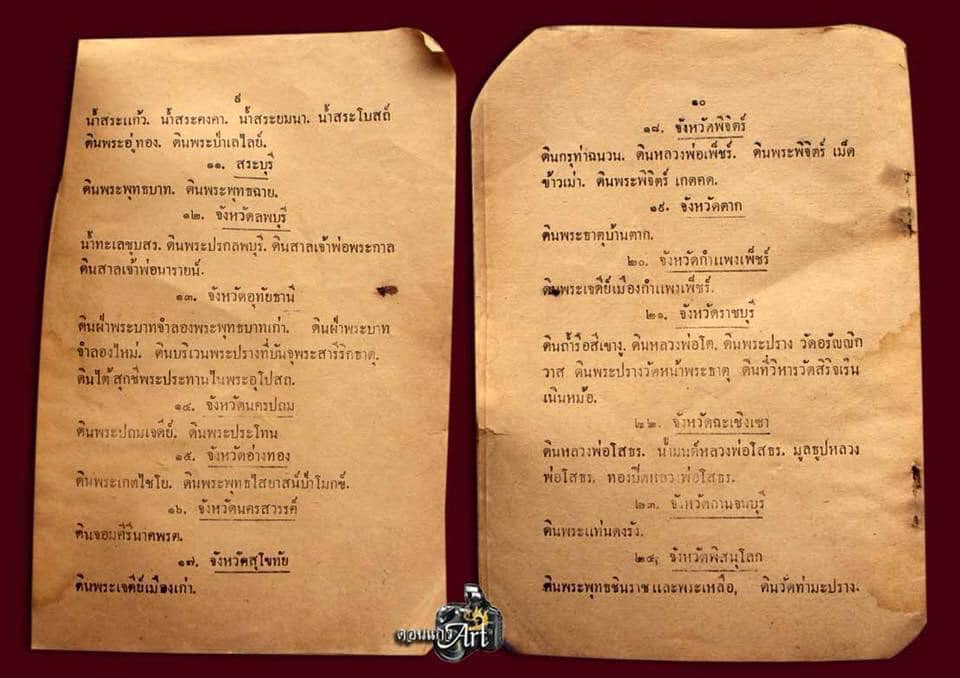 ๙
น้ำสระแก้ว. น้ำสระคงคา. น้ำสระยมนา. น้ำสระโบสถ์
ดินพระอู่ทอง. ดินพระป่าเลไลย์.
๑๑. สระบุรี
ดินพระพุทธบาท. ดินพระพุทธฉาย.
๑๒. จังหวัดลพบุรี
น้ำทะเลชุบสร. ดินพระปรกลพบุรี. ดินสาลเจ้าพ่อพระกาล
ดินสาลเจ้าพ่อนารายน์.
๑๓. จังหวัดอุทัยธานี
ดินฝ่าพระบาทจำลองพระพุทธบาทเก่า. ดินฝ่าพระบาท
จำลองใหม่. ดินบริเวนพระปรางที่บันจุพระสารีริกธาตุ.
ดินไต้สุกชีพระประทานในพระอุโปสถ.
๑๔. จังหวัดนครปถม
ดินพระปถมเจดีย์. ดินพระประโทน
๑๕. จังหวัดอ่างทอง
ดินพระเกตไชโย. ดินพระพุทธไสยาสน์ป่าโมกข์.
๑๖. จังหวัดนครสวรรค์
ดินจอมคีรีนาคพรต.
๑๗. จังหวัดสุโขทัย
ดินพระเจดีย์เมืองเก่า.
๑๐
๑๘. จังหวัดพิจิตร์
ดินกรุท่าฉนวน. ดินหลวงพ่อเพ็ชร์. ดินพระพิจิตร์ เม็ด
ข้าวเม่า. ดินพระพิจิตร์ เกตคด.
๑๙. จังหวัดตาก
ดินพระธาตุบ้านตาก.
๒๐. จังหวัดกำแพงเพ็ชร์
ดินพระเจดีย์เมืองกำแพงเพ็ชร์.
๒๑. จังหวัดราชบุรี
ดินถ้ำรือสีเขางู. ดินหลวงพ่อโต. ดินพระปราง วัดอรัญญิก
วาส ดินพระปรางวัดหน้าพระธาตุ ดินที่วิหารวัดสิริจเริน
เนินหม้อ.
๒๒. จังหวัดฉะเชิงเซา
ดินหลวงพ่อโสธร. น้ำมนต์หลวงพ่อโสธร. มูลธูปหลวง
พ่อโสธร. ทองปิดหลวงพ่อโสธร.
๒๓. จังหวัดกานจนบุรี
ดินพระแท่นดงรัง.
๒๔. จังหวัดพิสนุโลก
ดินพระพุทธชินราชและพระเหลือ, ดินวัดท่ามะปราง.
Art